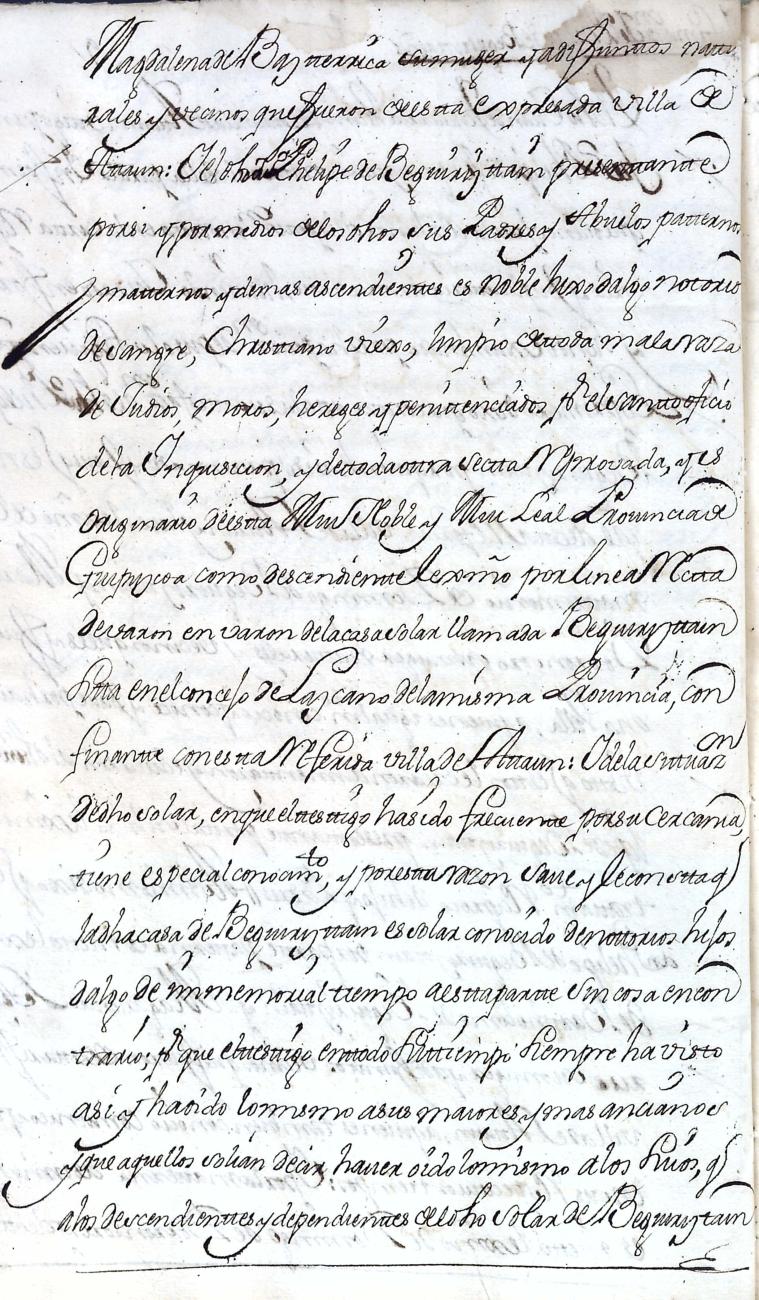 Magdalena de Bayterrica su muger ya difuntos natu
rales y vecinos que fueron de esta expresada villa de
Attaun: Y el dho Phelipe de Beguiryttain presentante
por si y por medios de los dhos sus Padres y Abuelos patternos
y matternos y demas ascendienttes es noble hixo dalgo notorio
de sangre, Christtiano viexo, limpio de ttoda mala raza
de Judios, moros, hereges y penittenciados pr el santto oficio
de la Inquisicion, y de ttoda ottra Sectta Reprovada, y es
originario de estta Mui Noble y Mui Leal Provincia de
Guipuzcoa como descendientte lexmo por linea Rectta
de varon en varon de la casa solar llamada Beguiryttain
sitta en el concejo de Lazcano de la misma Provincia, con
finantte con estta Referida villa de Attaun: Y de la situazn
de dho solar, en que el testtigo ha sido frecuentte por su cercania,
tiene especial conocimto, y por estta razon save y le constta q
la dha casa de Beguiryttain es solar conocido de nottorios hijos
dalgo de immemorial ttiempo a estta partte sin cosa en con
trario; pr que el testtigo en ttodo su ttiempo siempre ha visto
asi y ha oido lo mismo a sus maiores y mas ancianos
y que aquellos solian decir haver oido lo mismo a los suios, q
a los descendienttes y dependienttes de el dho solar de Beguirytain